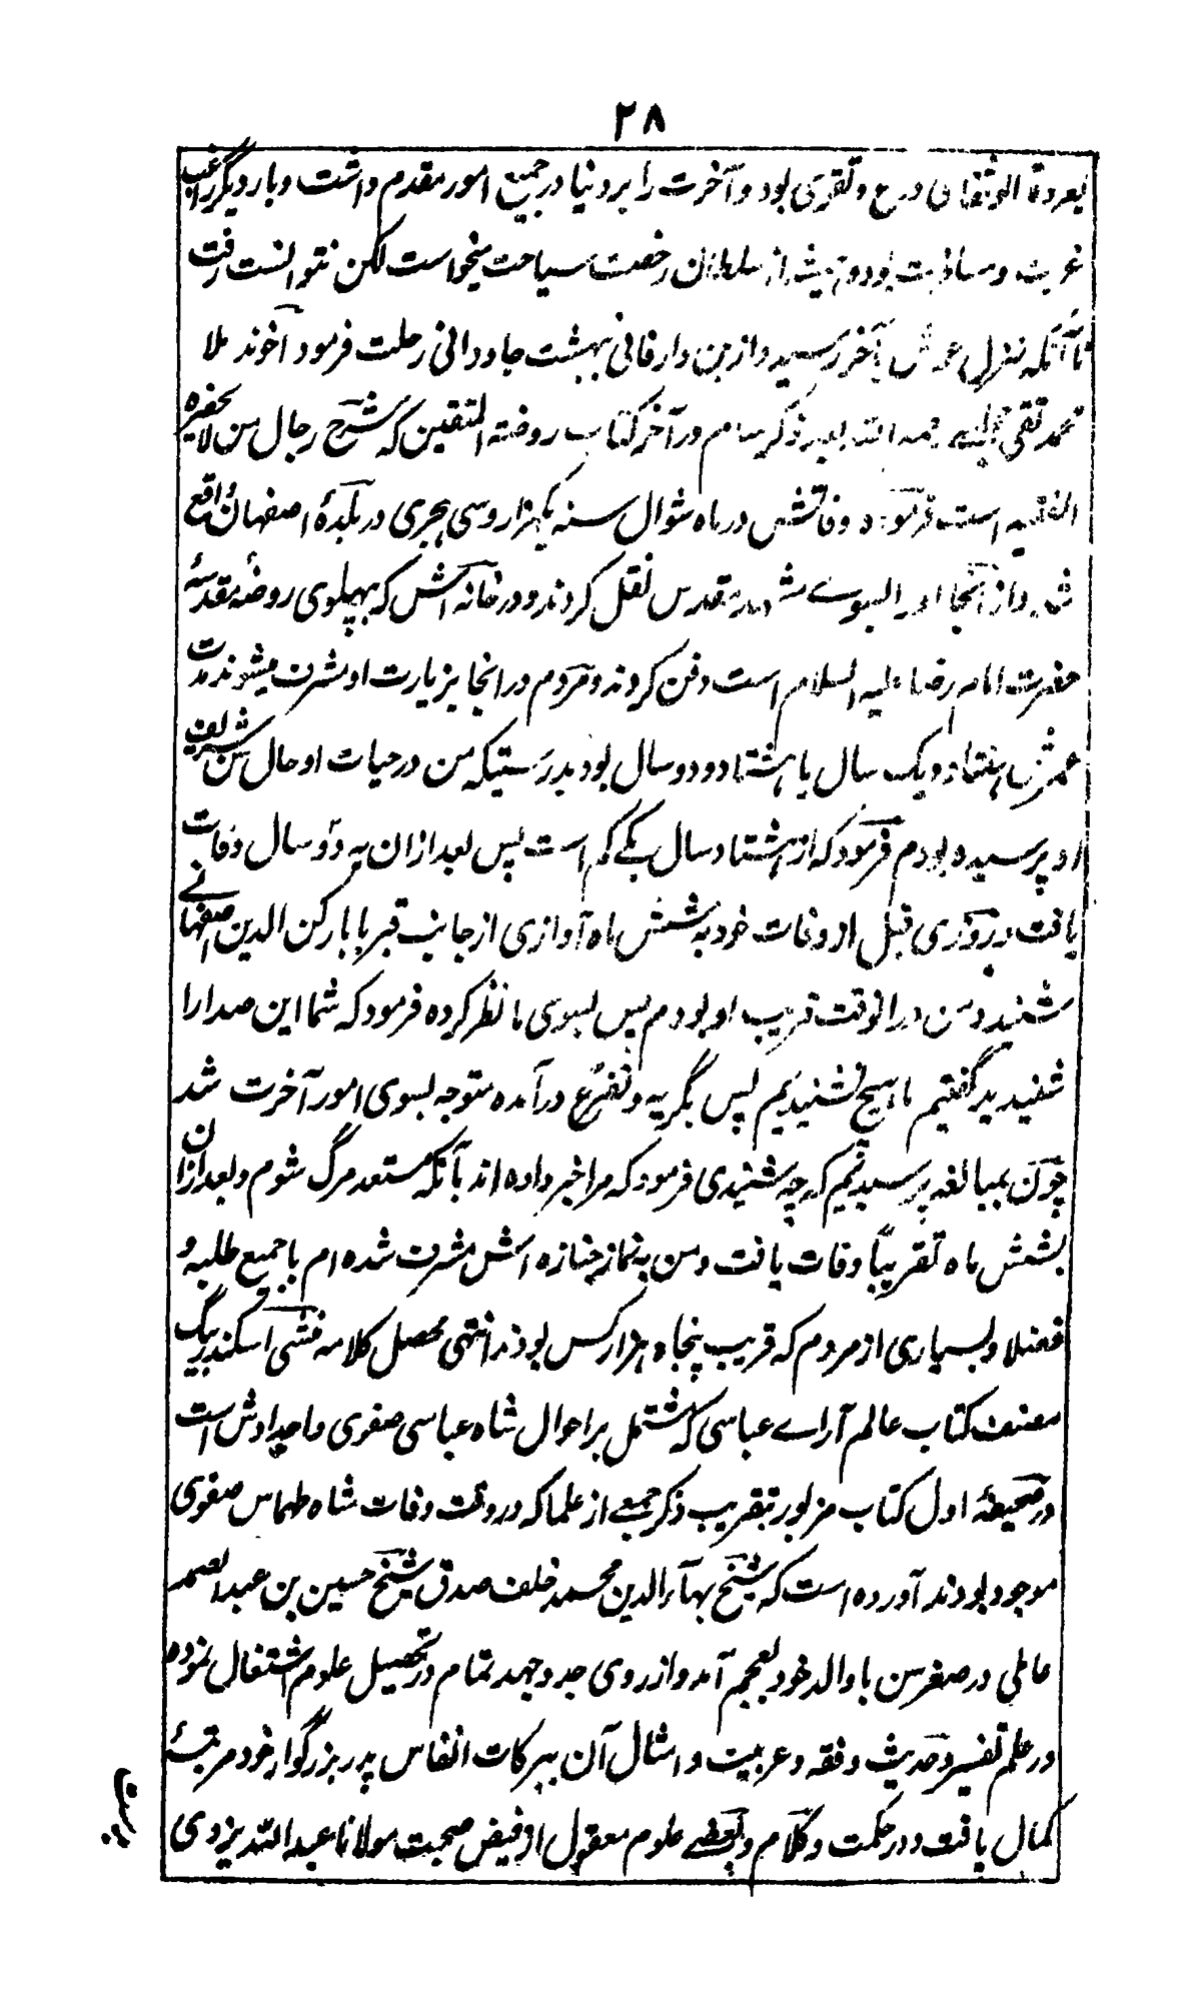 ۲۸
بعروة الوثقای ورع و تقوی بود و آخرت را بر دنیا در جمیع امور مقدم داشت و بار دیگر راغب
غربت و مسافرت بود و همیشه از سلطان رخصت سیاحت میخواست لکن نتوانست رفت
تا آنکه منزل عمرش بآخر رسید و ازین دار فانی ببهشت جاودانی رحلت فرمود آخوند ملا
محمد تقی مجلسے رحمه الله بعد ذکر سام در آخر کتاب روضته المتقین که شرح رجال من لایحضره
الفقیه است فرموده وفاتش در ماه شوال سنه یکهزار و سی هجری در بلدهٔ اصفهان واقع
شد و از آنجا او را بسوے مشهد مقدس نقل کردند و در خانه اش که بپهلوی روضهٔ مقدسهٔ
حضرت امام رضا علیه السلام است دفن کردند و مردم در انجا بزیارت او مشرف میشوند مدت
عمرش هفتاد و یک سال یا هشتاد و دو سال بود بدرستیکه من در حیات او حال سن شریف
او پرسیده بودم فرمود که از هشتاد سال یکے کم است پس بعد ازان به دو سال وفات
یافت و روزی قبل از وفات خود به شش ماه آوازی از جانب قبر بابا رکن الدین اصفهانے
شنید و من در انوقت قریب او بودم پس بسوی ما نظر کرده فرمود که شما این صدا را
شنیدید گفتیم ما هیچ نشنیدیم پس بگریه و تضرع در آمده متوجه بسوی امور آخرت شد
چون بمبالغه پرسیدیم که چه شنیدی فرمود که مرا خبر داده اند بآنکه مستعد مرگ شوم و بعد ازان
بشش ماه تقریباً وفات یافت و من به نماز جنازه اش مشرف شده ام با جمیع طلبه و
فضلا و بسیاری از مردم که قریب پنجاه هزار کس بودند انتهی محصل کلامه منشی اسکندر بیگ
مصنف کتاب عالم آراے عباسی که مشتمل بر احوال شاه عباسی صفوی و اجدادش است
در صحیفهٔ اول کتاب مزبور بتقریب ذکر جمعے از علما که در وقت وفات شاه طهماس صفوی
موجود بودند آورده است که شیخ بهاء الدین محمد خلف صدق شیخ حسین بن عبد الصمد
عاملی در صغر سن با والد خود بعجم آمد و از روی جد و جهد تمام در تحصیل علوم اشتغال نموده
در علم تفسیر و حدیث و فقه و عربیت و امثال آن ببرکات انفاس پدر بزرگوار خود مرتبهٔ
کمال یافت و در حکمت و کلام و بعضے علوم معقول از فیض صحبت مولانا عبد الله یزدی